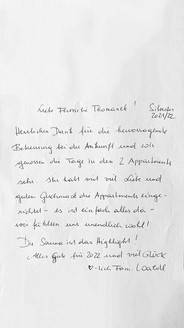 Liebe Familie Thomaset! Silvester
2021/22
Herzlichen Dank für die hervorragende
Betreuung bei der Ankunft und wir
genossen die Tage in den 2 Appartments
sehr. Ihr habt mit viel Liebe und
gutem Geschmack die Appartments einge-
richtet - es ist einfach alles da -
wir fühlten uns unendlich wohl!
Die Sauna ist das Highlight!
Alles Gute für 2022 und viel Glück
♡-lich Fam.